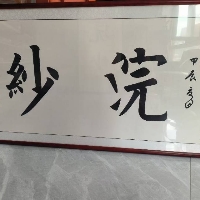 甲辰
浣紗